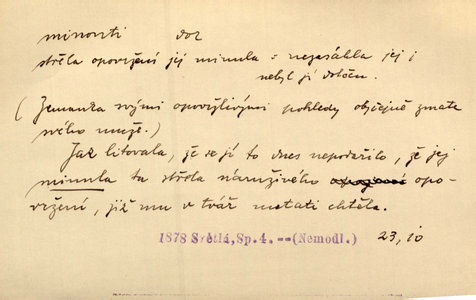 minouti dok
střela opovržení jej minula = nezasáhla jej i
nebyl jí dotčen.
(Zemanka svými opovržlivými pohledy obyčejně zmate
svého muže.)
Jak litovala, že se jí to dnes nepodařilo, že jej
minula ta střela náruživého opo-
vržení, již mu v tvář metati chtěla.
1878 Světlá, Sp. 4. --(Nemodl.) 23, 10